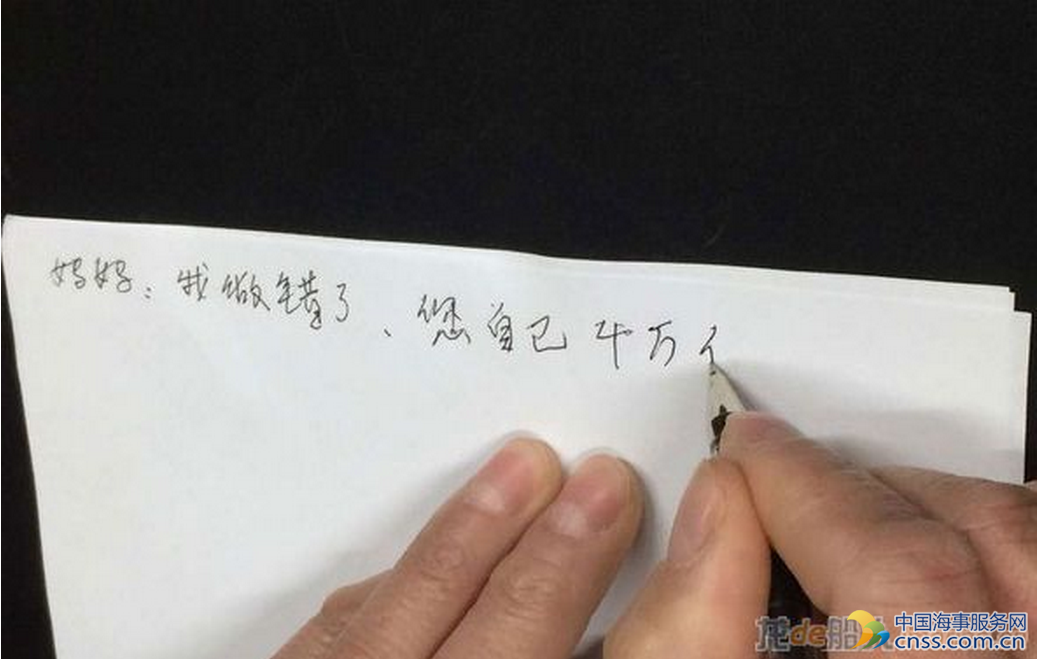 妈妈：我做错了、您自己千万
龙de船人
中国海事服务网
cnss.com.cn